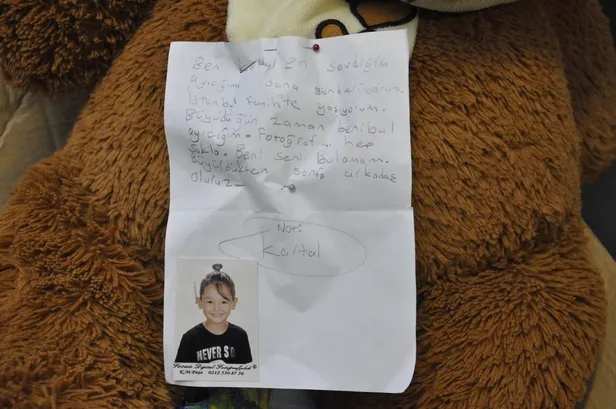 Ben en sevdiğim
ayıcığımı sana gönderiyorum.
İstanbul Fatihte yaşıyorum.
Büyüdüğün zaman beni bul
ayıcığım. Fotoğrafımı hep
sakla. Beni seni bulamam.
büyüdükten sonra arkadaş
oluruz.
Not:
Kartal
NEVER S
0212 530 87 76